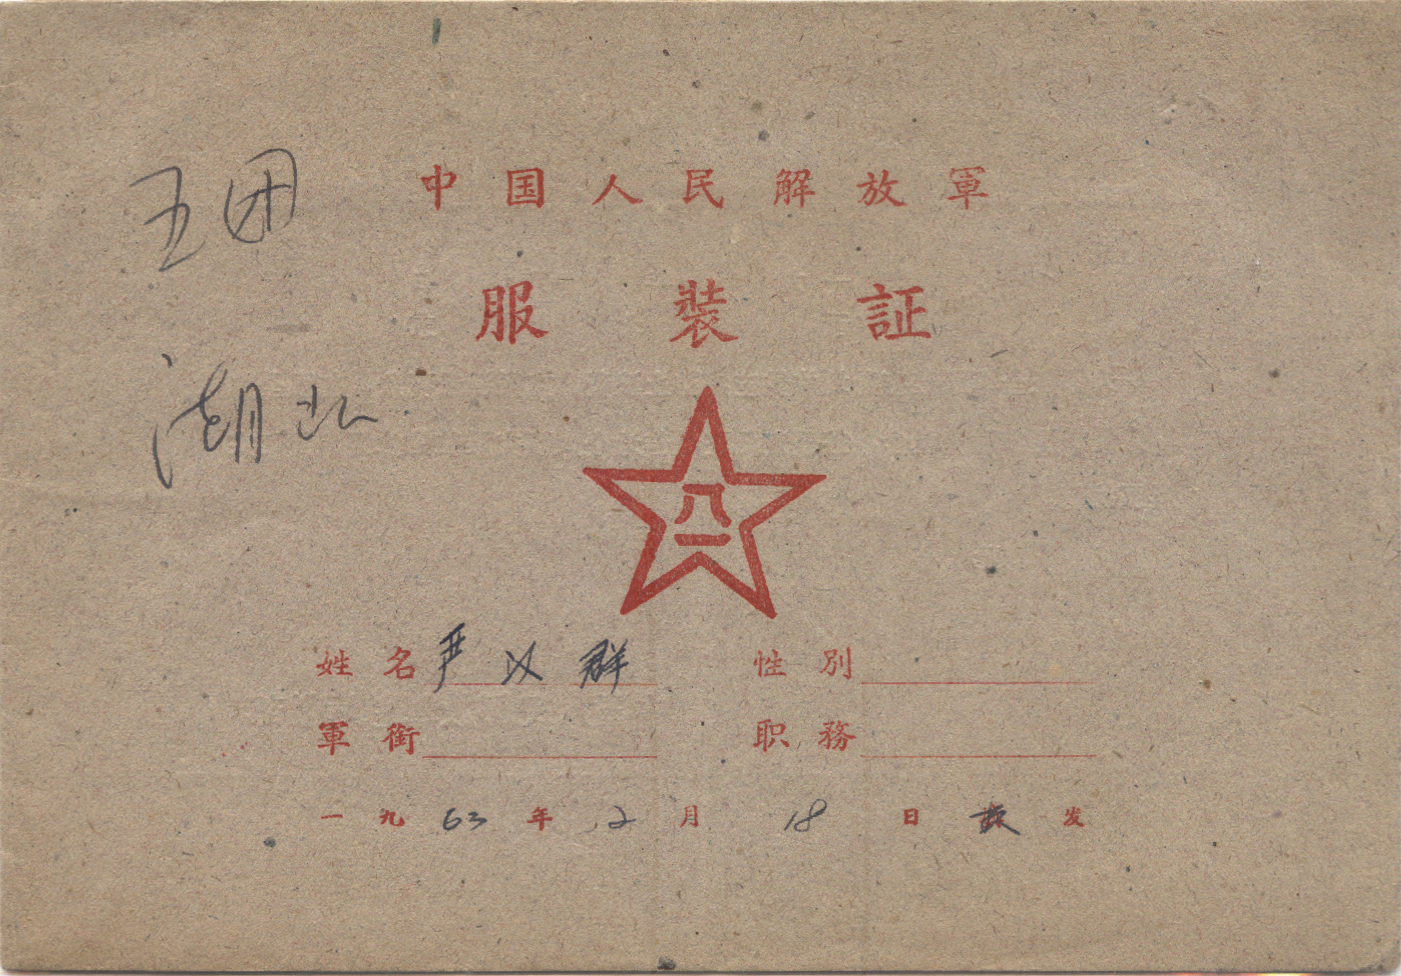 五团
中国人民解放軍
服裝証
湖北
八一
姓名 严以群 性別
軍銜 职務
一九63年12月18日 发